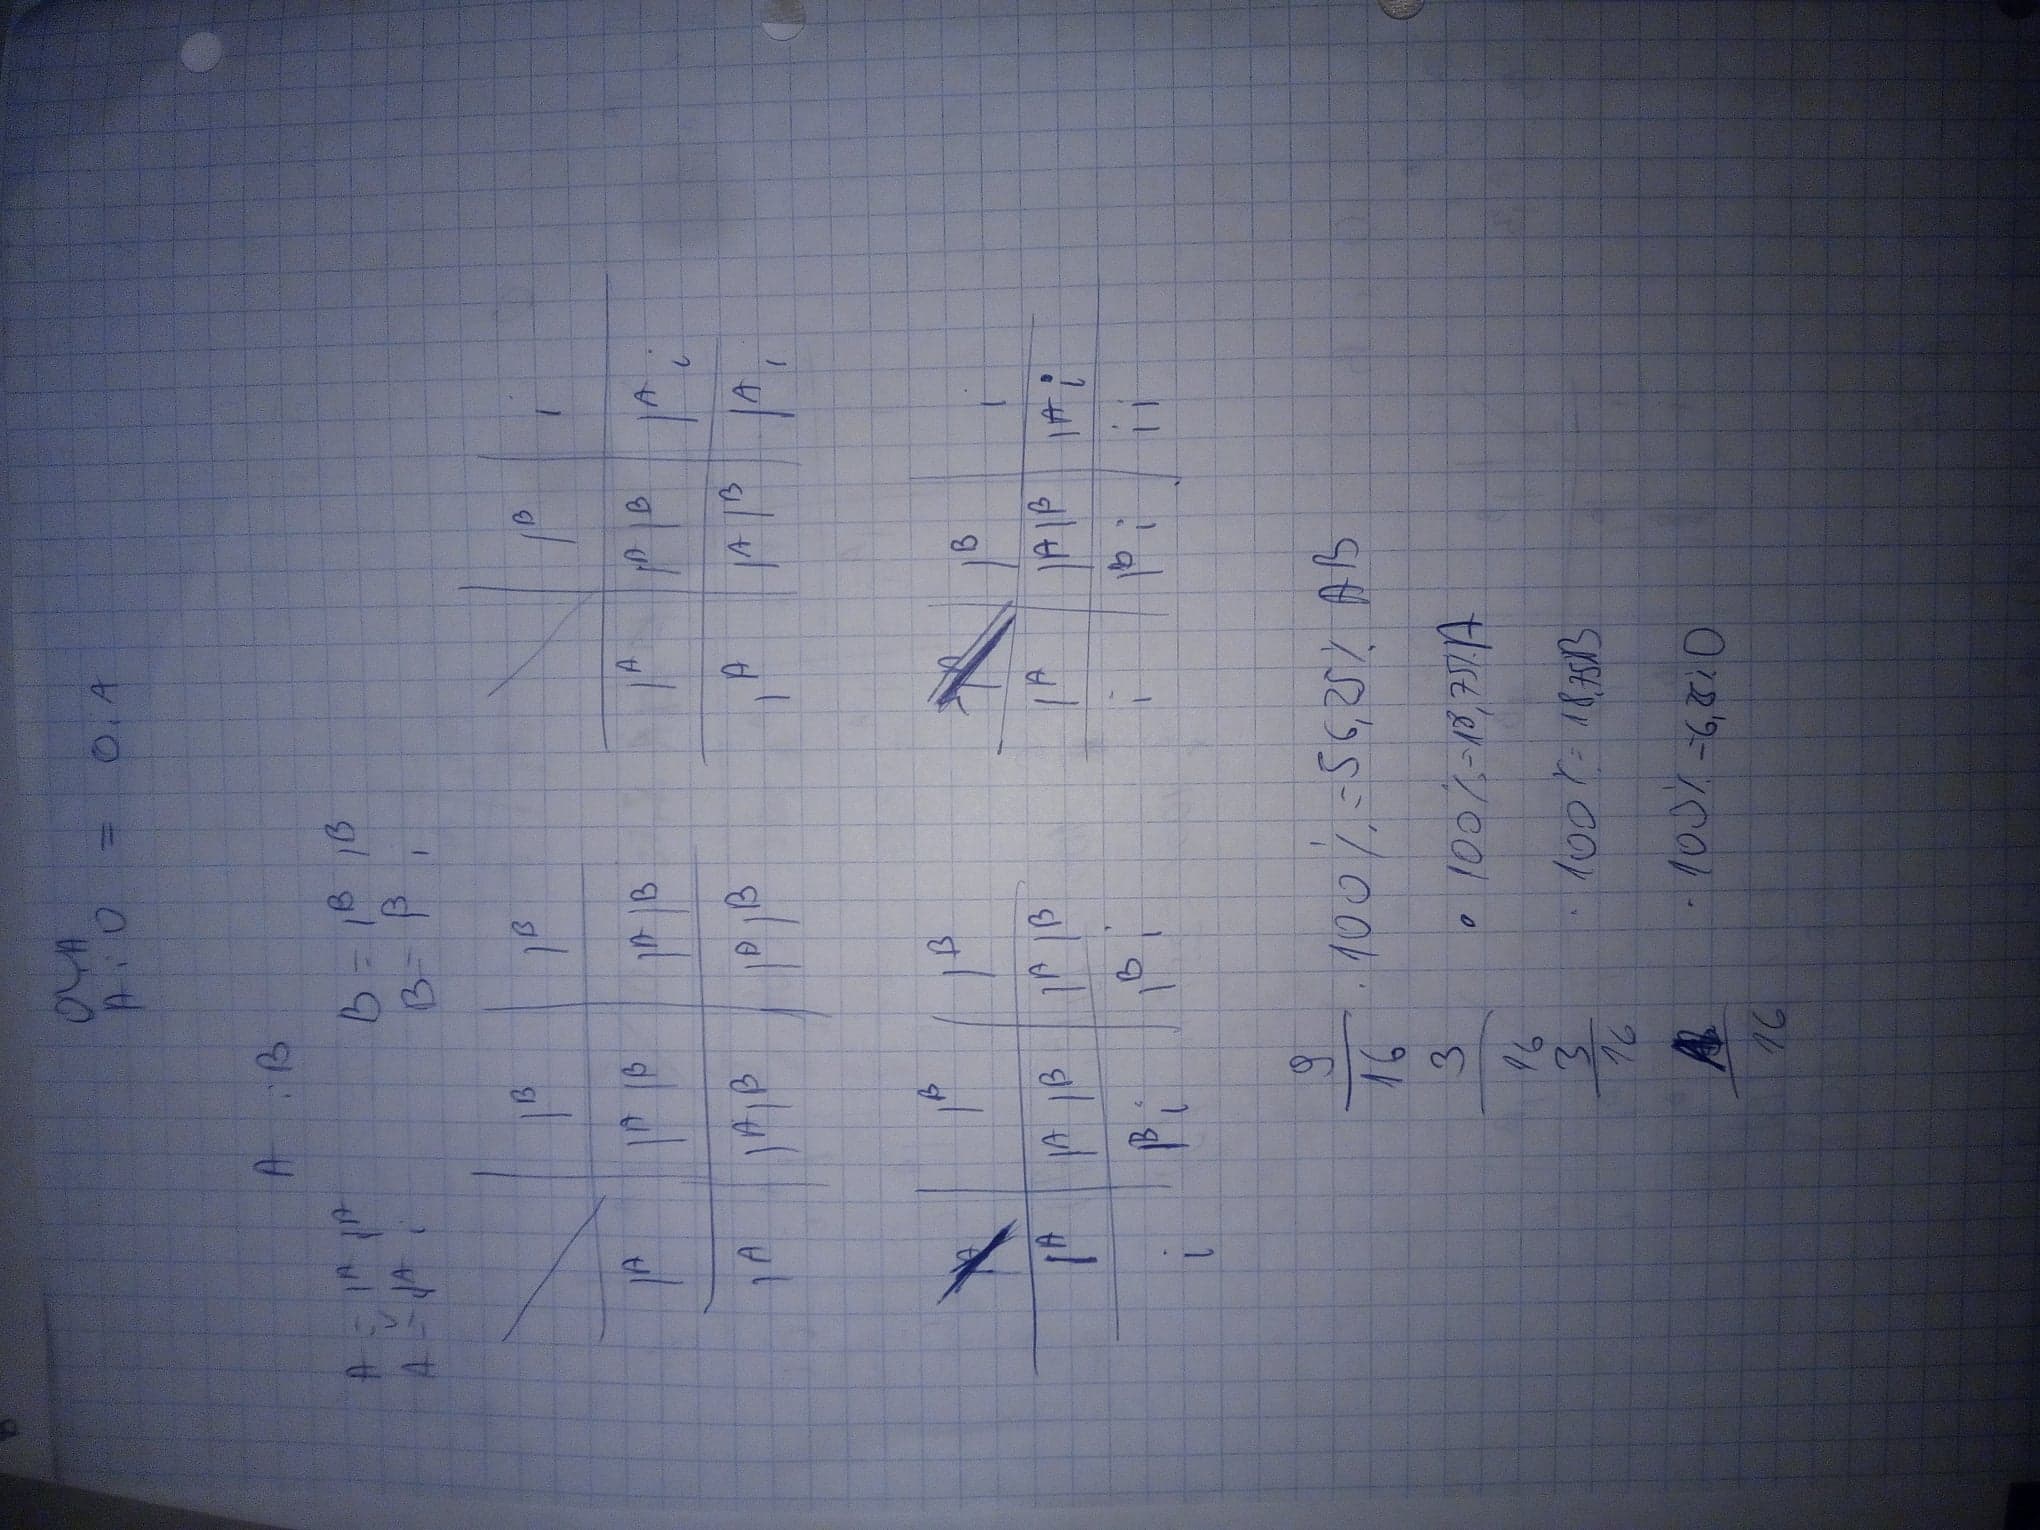 O4A
A : O = O : A
A : B
A = IA IA B = IB IB
v
A = IA i B = B i
IB IB IB i
IA IA IB IA IB IA IA IB IA i
IA IA IB IA IB IA IA IB IA i
IB IB IB i
IA IA IB IA IB IA IA IB IA i
i IB i IB i i IB i ii
9/16 · 100% = 56,25% AB
3/16 · 100% = 18,75% A
3/16 · 100% = 18,75B
/16 · 100% = 6,25% O